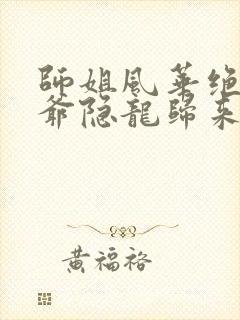 師姐風華绝
爺隐龍歸来
黄福裕